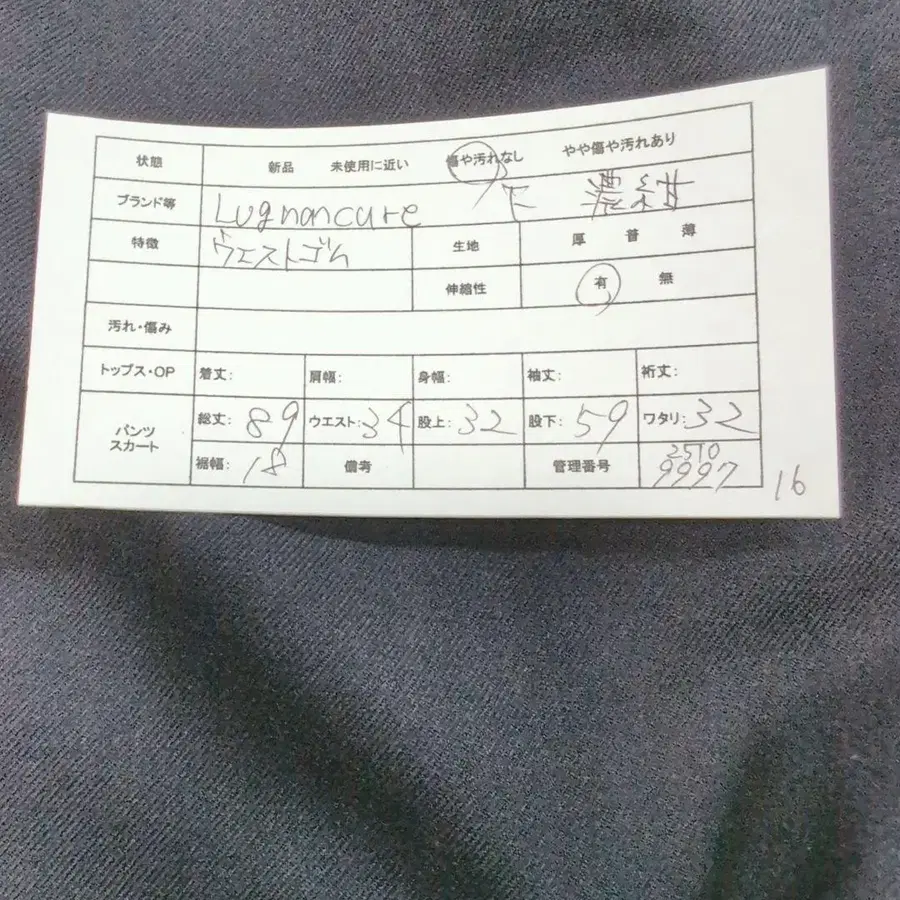 状態 新品 未使用に近い 傷や汚れなし やや傷や汚れあり
ブランド等 Lugnoncure 下 濃紺
特徴 ウエストゴム 生地 厚 普 薄
伸縮性 有 無
汚れ・傷み
トップス・OP 着丈: 肩幅: 身幅: 袖丈: 裄丈:
パンツ スカート 総丈: 89 ウエスト: 34 股上: 32 股下: 59 ワタリ: 32
裾幅: 18 備考 管理番号 2510
9997
16